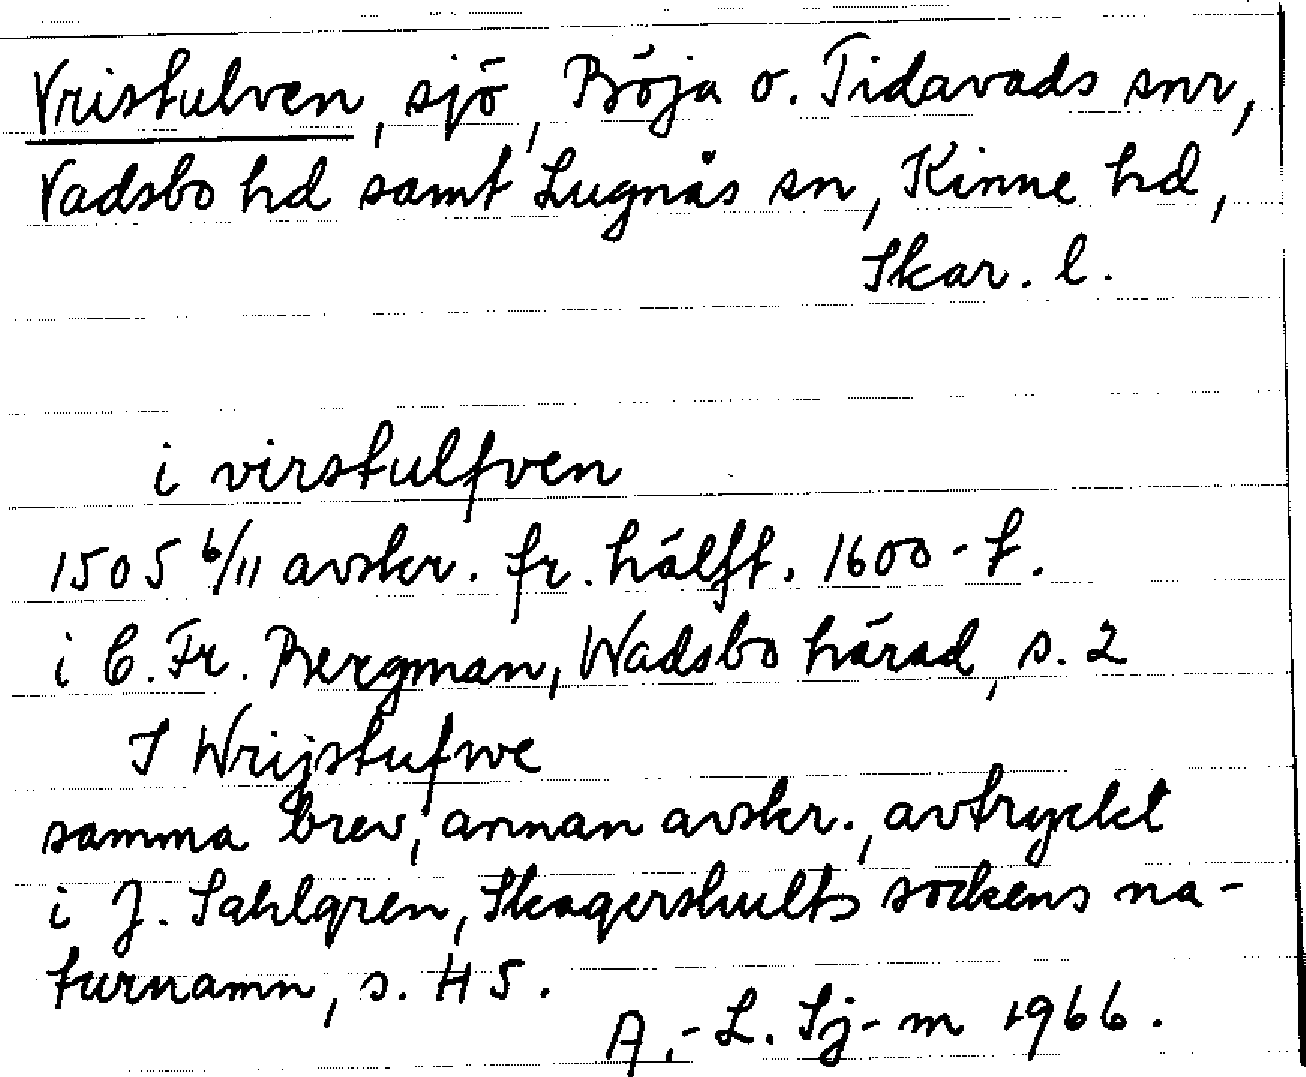 Vristulven, sjö, Böja o. Tidavads snr,
Vadsbo hd samt Lugnås sn, Kinne hd,
Skar. l.
i virstulfven
1505 6/11 avskr. fr. hälft. 1600-t.
i C. Fr. Bergman, Wadsbo härad, s. 2
I Wrijstufwe
samma brev, annan avskr., avtryckt
i J. Sahlgren, Skagershults sockens na-
turnamn, s. 45.
A.-L. Sj-m 1966.